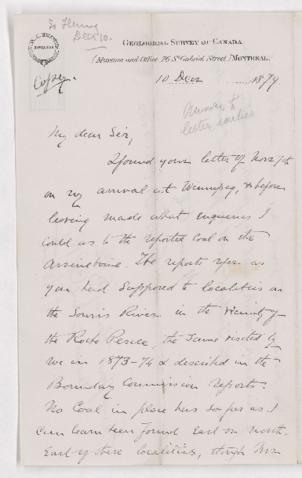 To Fleming
Dec 10.
GEOLOGICAL SURVEY OF CANADA
(Museum and Office, 76 St Gabriel Street) MONTREAL.
Copy.
10 Decr 1879
Answer to
letter earlier
My dear Sir,
I found your letter of Nov 7th
on my arrival at Winnipeg, & before
leaving made what enquiries I
could as to the reported Coal on the
Assineboine. The reports refer as
you had supposed to localities on
the Souris River in the vicinity of
the Roche Percée, the same visited by
me in 1873-74 & described in the
Boundary Commission Reports.
No Coal in place has so far as I
can learn been found East or North-
East of these localities, though